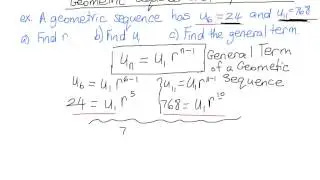 Geometric
ex. A geometric sequence has u₆=24 and u₁₁=768
a) Find r b) Find u, c) Find the general term
uₙ = u₁ rⁿ⁻¹ General Term of a Geometic Sequence
u₆ = u₁ r⁶⁻¹ u₁₁ = u₁ rⁿ⁻¹
24 = u₁ r⁵ 768 = u₁ r¹⁰
7